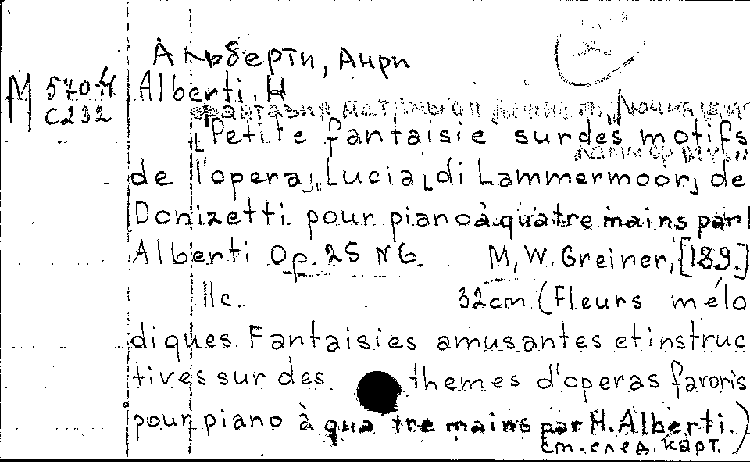 Альберти, Анри
М 570-4 Alberti, H
С232
"Petite fantaisie sur des motifs
de l'opera "Lucia di Lammermoor" de
Donizetti pour piano à quatre mains par
Alberti Op. 25 N6. M, W. Greiner, [189.]
11 с. 32 cm. (Fleurs mélo
diques. Fantaisies amusantes et instruc
tives sur des themes d'operas favoris
pour piano à qua tre mains par H. Alberti.)
см. след. карт.